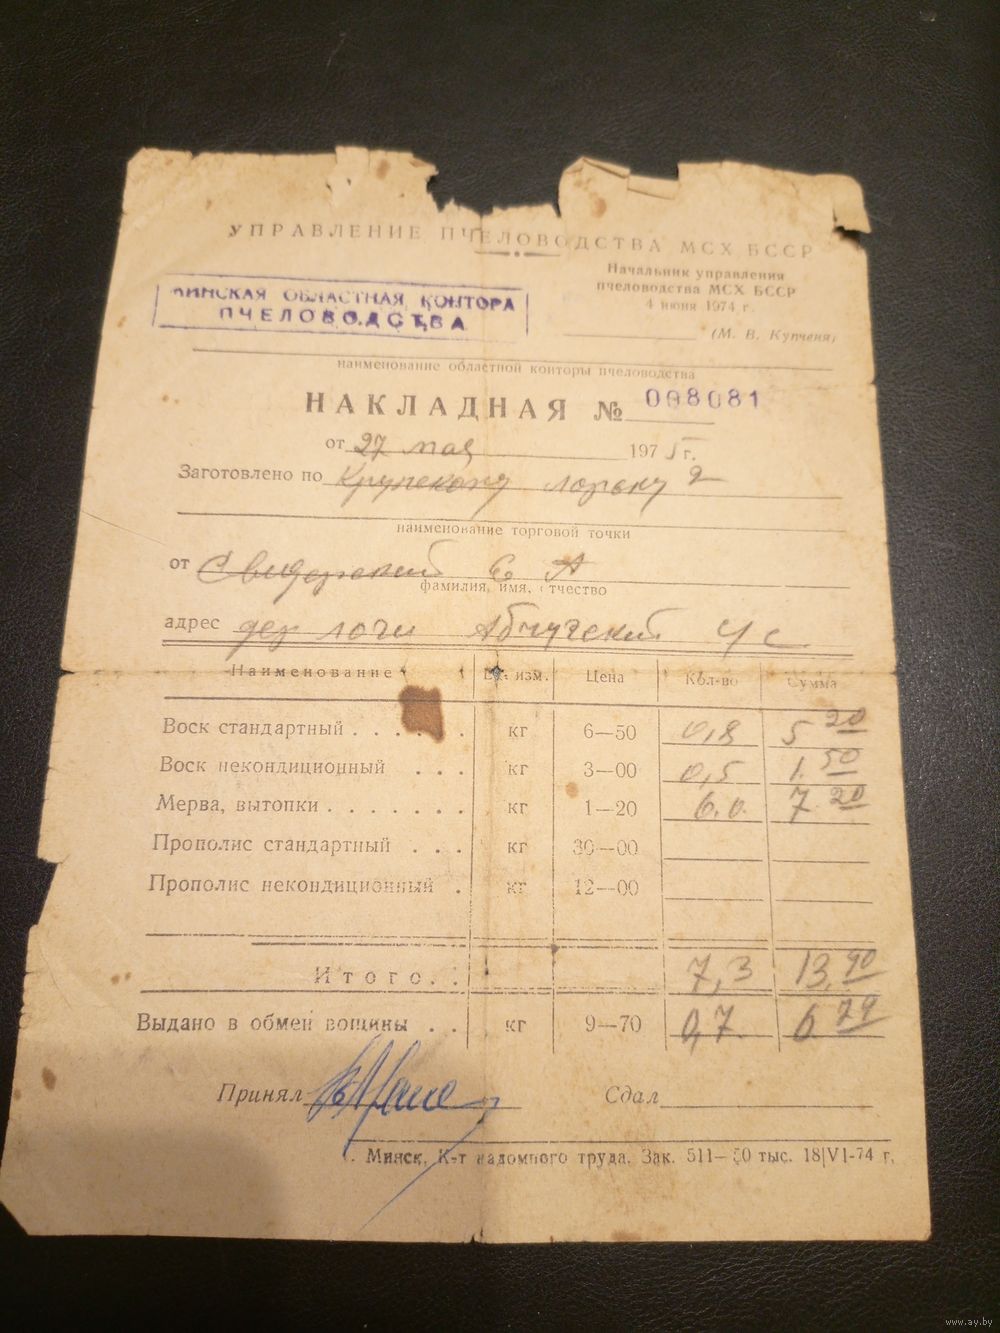 УПРАВЛЕНИЕ ПЧЕЛОВОДСТВА МСХ БССР
Начальник управления
пчеловодства МСХ БССР
4 июня 1974 г.
(М. В. Купченя)
МИНСКАЯ ОБЛАСТНАЯ КОНТОРА
ПЧЕЛОВОДСТВА
наименование областной конторы пчеловодства
НАКЛАДНАЯ № 008081
от 27 мая 1975 г.
Заготовлено по Крупскому ларьку 2
наименование торговой точки
от Свидерский Е А
фамилия, имя, отчество
адрес дер Абчугский с/с
Наименование Ед. изм. Цена Кол-во Сумма
Воск стандартный . . . . . . кг 6—50 0,8 5 20
Воск некондиционный . . . кг 3—00 0,5 1. 50
Мерва, вытопки . . . . . . . кг 1—20 6.0. 7 20
Прополис стандартный . . . кг 30—00
Прополис некондиционный . кг 12—00
Итого. . 7,3 13,90
Выдано в обмен вощины . . кг 9—70 0,7 6 79
Принял Сдал
г. Минск. К-т надомного труда. Зак. 511—50 тыс. 18|VI-74 г.
www.ay.by